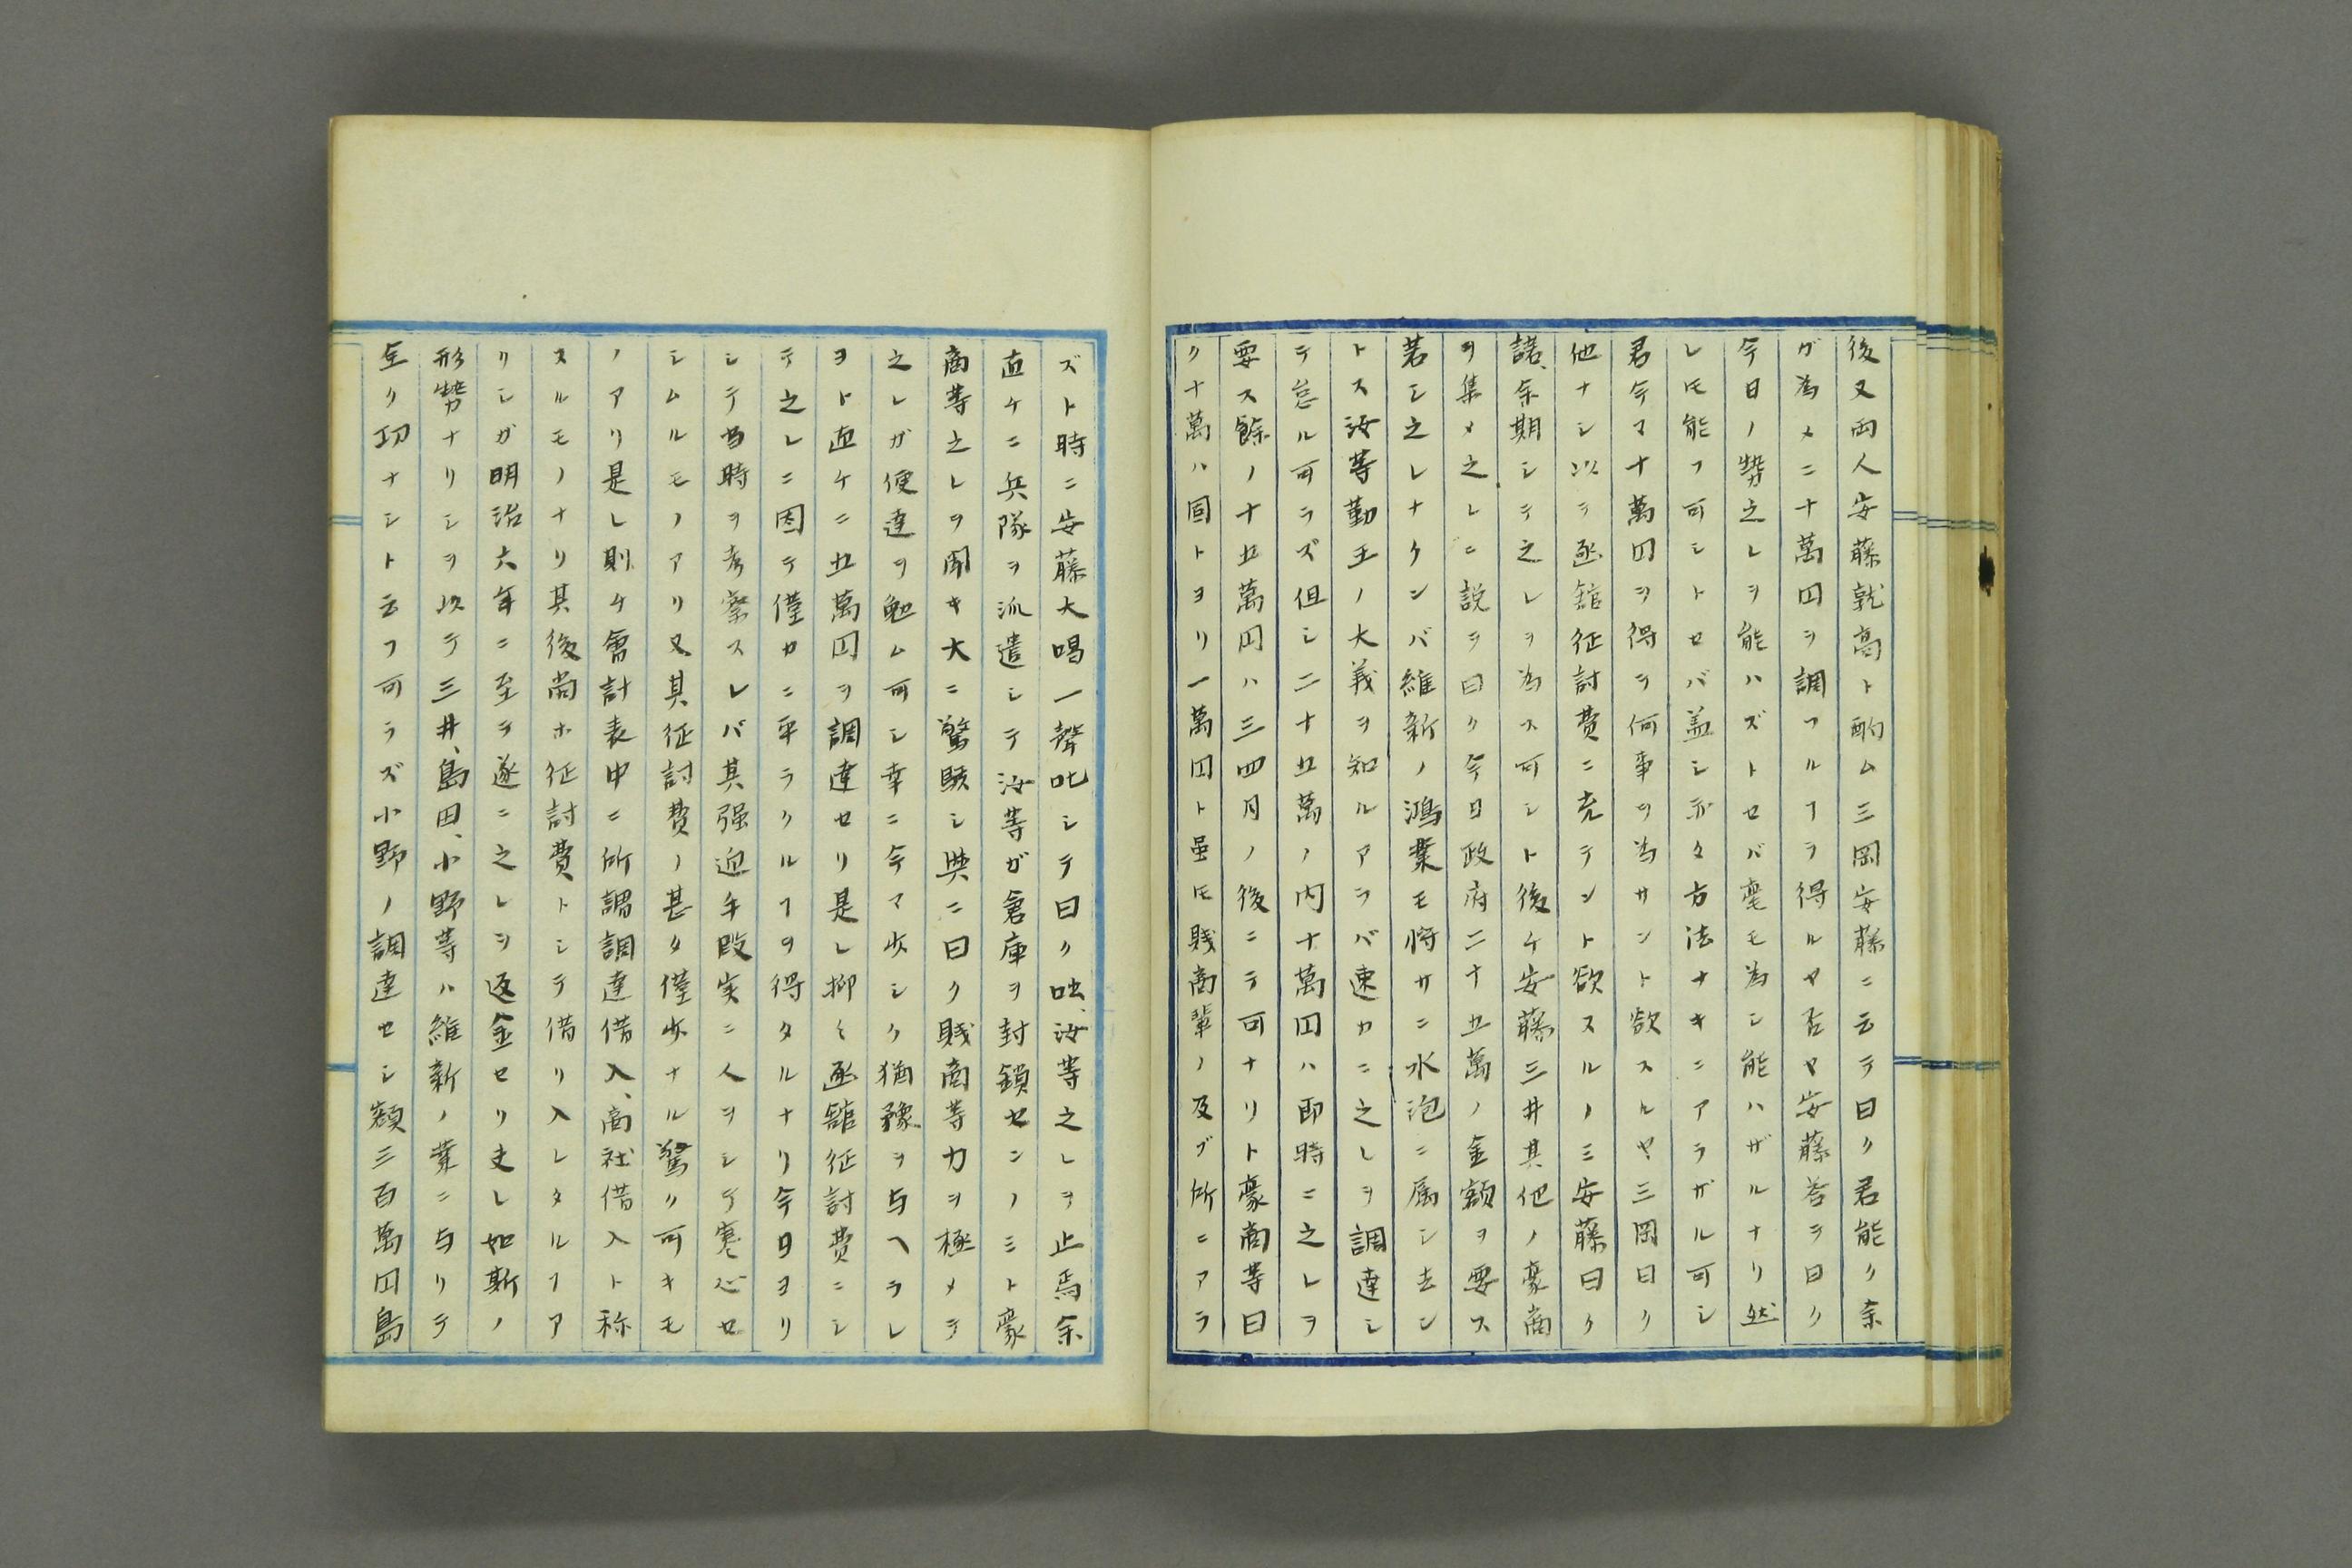 後又両人安藤就高ト酌ム三岡安藤ニ云テ曰ク君能ク余
ガ為メニ十萬円ヲ調フルヿヲ得ルヤ否ヤ安藤答テ曰ク
今日ノ勢之レヲ能ハズトセバ毫モ為シ能ハザルナリ然
レ𪜈能フ可シトセバ盖シ亦タ方法ナキニアラザル可シ
君今マ十萬円ヲ得テ何事ヲ為サント欲スルヤ三岡曰ク
他ナシ以テ函館征討費ニ充テント欲スルノミ安藤曰ク
諾、余期シテ之レヲ為ス可シト後ケ安藤三井其他ノ豪商
ヲ集メ之レニ説ヲ曰ク今日政府二十五萬ノ金額ヲ要ス
若シ之レナクンバ維新ノ鴻業モ将サニ水泡ニ属シ去ン
トス汝等勤王ノ大義ヲ知ルアラバ速カニ之レヲ調達シ
テ怠ル可ラズ但シ二十五萬ノ内十萬円ハ即時ニ之レヲ
要ス餘ノ十五萬円ハ三四月ノ後ニテ可ナリト豪商等曰
ク十萬ハ固トヨリ一萬円ト虽𪜈賎商輩ノ及ブ所ニアラ
ズト時ニ安藤大喝一聲叱シテ曰ク咄、汝等之レヲ止焉余
直ケニ兵隊ヲ派遣シテ汝等ガ倉庫ヲ封鎖センノミト豪
商等之レヲ聞キ大ニ驚駭シ與ニ曰ク賎商等力ヲ極メテ
之レガ便達ヲ勉ム可シ幸ニ今マ少シク猶豫ヲ与ヘラレ
ヨト直ケニ五萬円ヲ調達セリ是レ抑〻函館征討費ニシ
テ之レニ因テ僅カニ平ラクルヿヲ得タルナリ今日ヨリ
シテ当時ヲ考察スレバ其强迫手段実ニ人ヲシテ寒心セ
シムルモノアリ又其征討費ノ甚タ僅少ナル驚ク可キモ
ノアリ是レ則ケ會計表中ニ所謂調達借入、商社借入ト称
スルモノナリ其後尚ホ征討費トシテ借リ入レタルヿア
リシガ明治六年ニ至テ遂ニ之レヲ返金セリ夫レ如斯ノ
形勢ナリシヲ以テ三井、島田、小野等ハ維新ノ業ニ与リテ
至リ功ナシト云フ可ラズ小野ノ調達セシ額三百萬円島